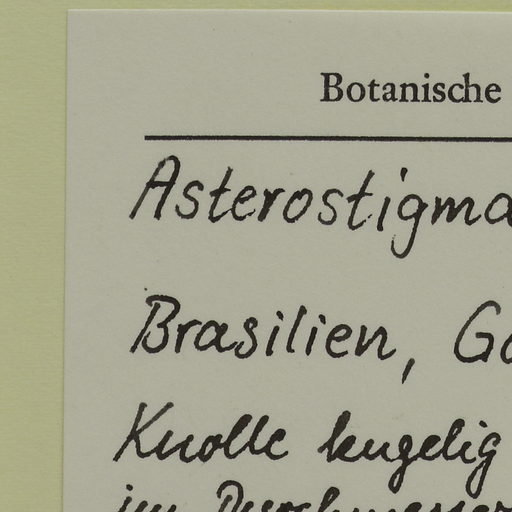 Botanische
Asterostigma
Brasilien, Go
Knolle kugelig
im Durchmesser